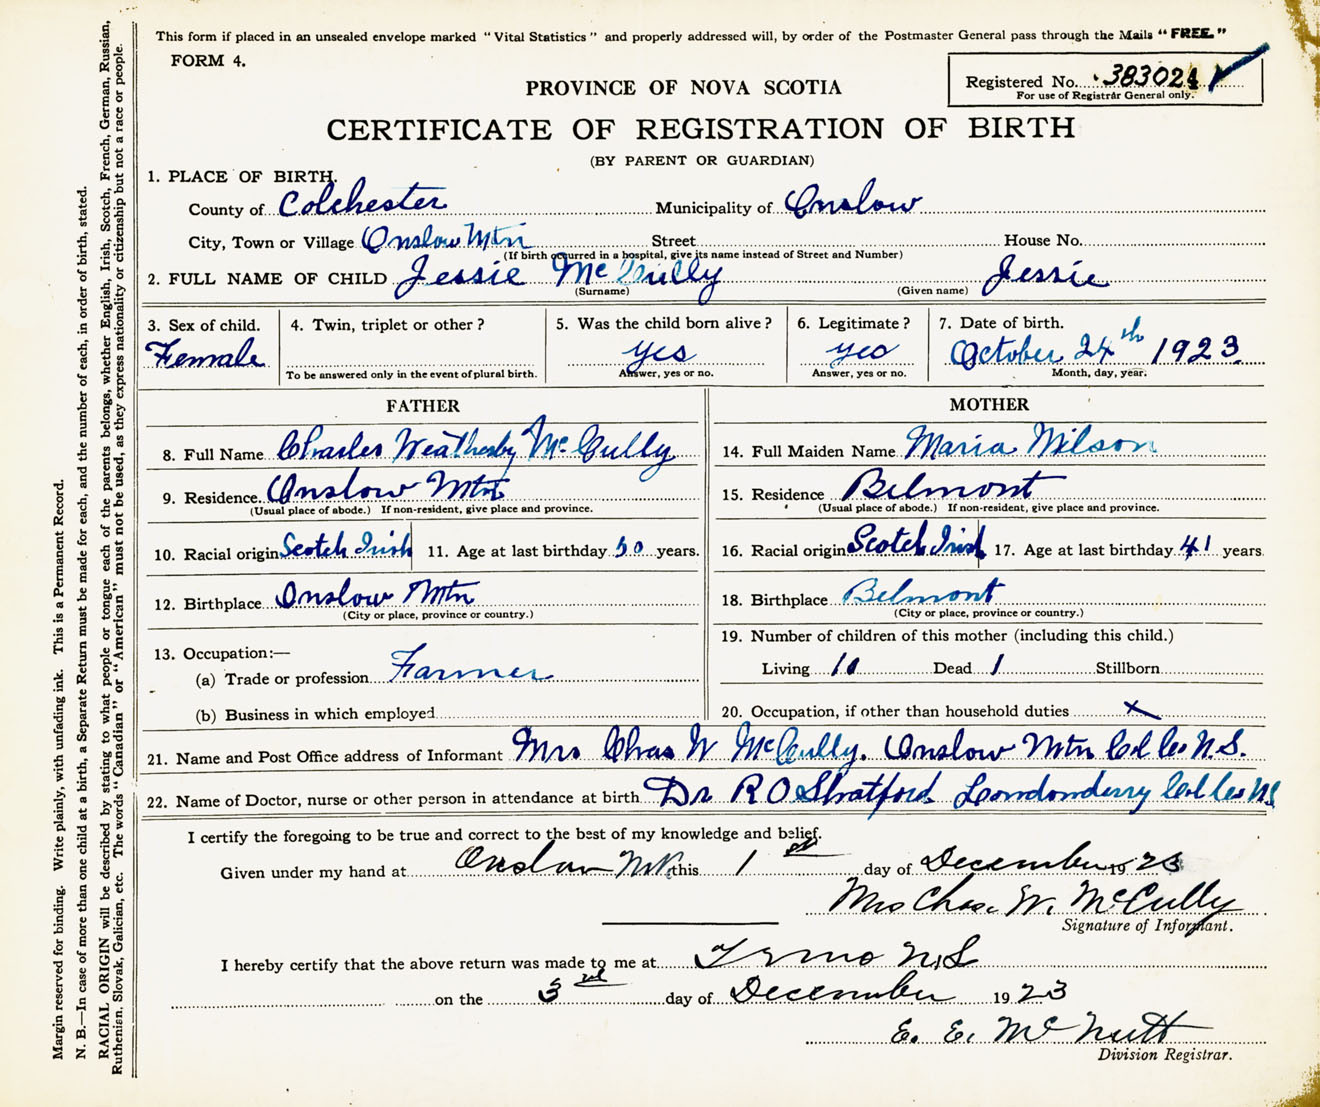 This form if placed in an unsealed envelope marked "Vital Statistics" and properly addressed will, by order of the Postmaster General pass through the Mails "FREE."
FORM 4.
Registered No. 383024
For use of Registrar General only.
PROVINCE OF NOVA SCOTIA
CERTIFICATE OF REGISTRATION OF BIRTH
(BY PARENT OR GUARDIAN)
1. PLACE OF BIRTH.
County of Colchester Municipality of Onslow
City, Town or Village Onslow Mtn Street House No.
(If birth occurred in a hospital, give its name instead of Street and Number)
2. FULL NAME OF CHILD Jessie McCully Jessie
(Surname) (Given name)
3. Sex of child. 4. Twin, triplet or other? 5. Was the child born alive? 6. Legitimate? 7. Date of birth.
Female yes yes October 24th 1923
To be answered only in the event of plural birth. Answer, yes or no. Answer, yes or no. Month, day, year.
FATHER
8. Full Name Charles Weathesby McCully
9. Residence. Onslow Mtn
(Usual place of abode.) If non-resident, give place and province.
10. Racial origin Scotch Irish 11. Age at last birthday 50 years.
12. Birthplace Onslow Mtn
(City or place, province or country.)
13. Occupation:—
(a) Trade or profession Farmer
(b) Business in which employed
MOTHER
14. Full Maiden Name Maria Wilson
15. Residence Belmont
(Usual place of abode.) If non-resident, give place and province.
16. Racial origin Scotch Irish 17. Age at last birthday 41 years.
18. Birthplace Belmont
(City or place, province or country.)
19. Number of children of this mother (including this child.)
Living 10 Dead 1 Stillborn
20. Occupation, if other than household duties x
21. Name and Post Office address of Informant Mrs Chas W McCully. Onslow Mtn Col Co N.S.
22. Name of Doctor, nurse or other person in attendance at birth Dr R O Shatford Londonderry Col Co NS
I certify the foregoing to be true and correct to the best of my knowledge and belief.
Given under my hand at Onslow Mtn this 1st day of December 1923
Mrs Chas. W. McCully
Signature of Informant.
I hereby certify that the above return was made to me at N.S
on the 3rd day of December 1923
E. E. McNutt
Division Registrar.
Margin reserved for binding. Write plainly, with unfading ink. This is a Permanent Record.
N. B.—In case of more than one child at a birth, a Separate Return must be made for each, and the number of each, in order of birth, stated.
RACIAL ORIGIN will be described by stating to what people or tongue each of the parents belongs, whether English, Irish, Scotch, French, German, Russian,
Ruthenian, Slovak, Galician, etc. The words "Canadian" or "American" must not be used, as they express nationality or citizenship but not a race or people.